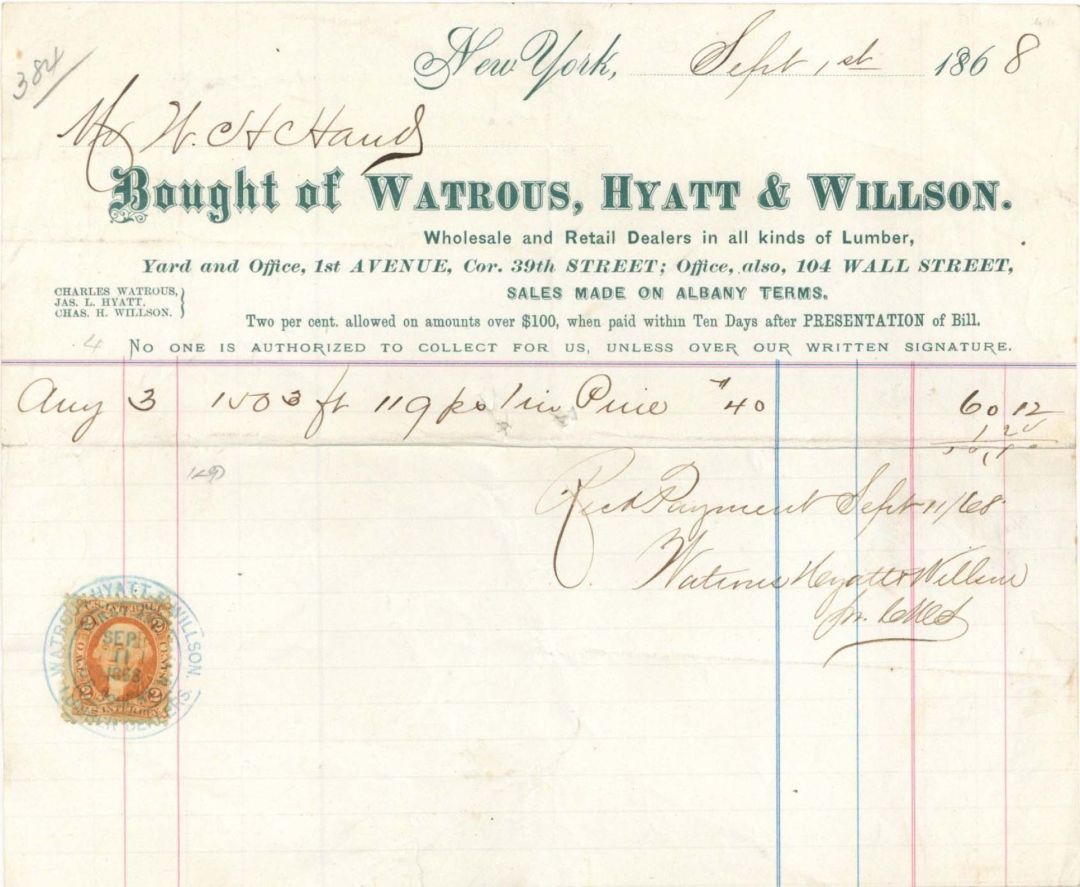 384
New York, Sept 1st 1868
Mr W. H Hand
Bought of WATROUS, HYATT & WILLSON.
Wholesale and Retail Dealers in all kinds of Lumber,
Yard and Office, 1st AVENUE, Cor. 39th STREET; Office, also, 104 WALL STREET,
CHARLES WATROUS,
JAS. L. HYATT.
CHAS. H. WILLSON.
SALES MADE ON ALBANY TERMS.
Two per cent. allowed on amounts over $100, when paid within Ten Days after PRESENTATION of Bill.
4
NO ONE IS AUTHORIZED TO COLLECT FOR US, UNLESS OVER OUR WRITTEN SIGNATURE.
Aug 3 1503 ft 119 ps 1 in Pine $40 60 12
1 20
Recd Payment Sept 11/68
Watrous Hyatt & Willson
WATROUS, HYATT & WILLSON.
SEP
11
1868
LUMBER DEALERS
TWO CENTS